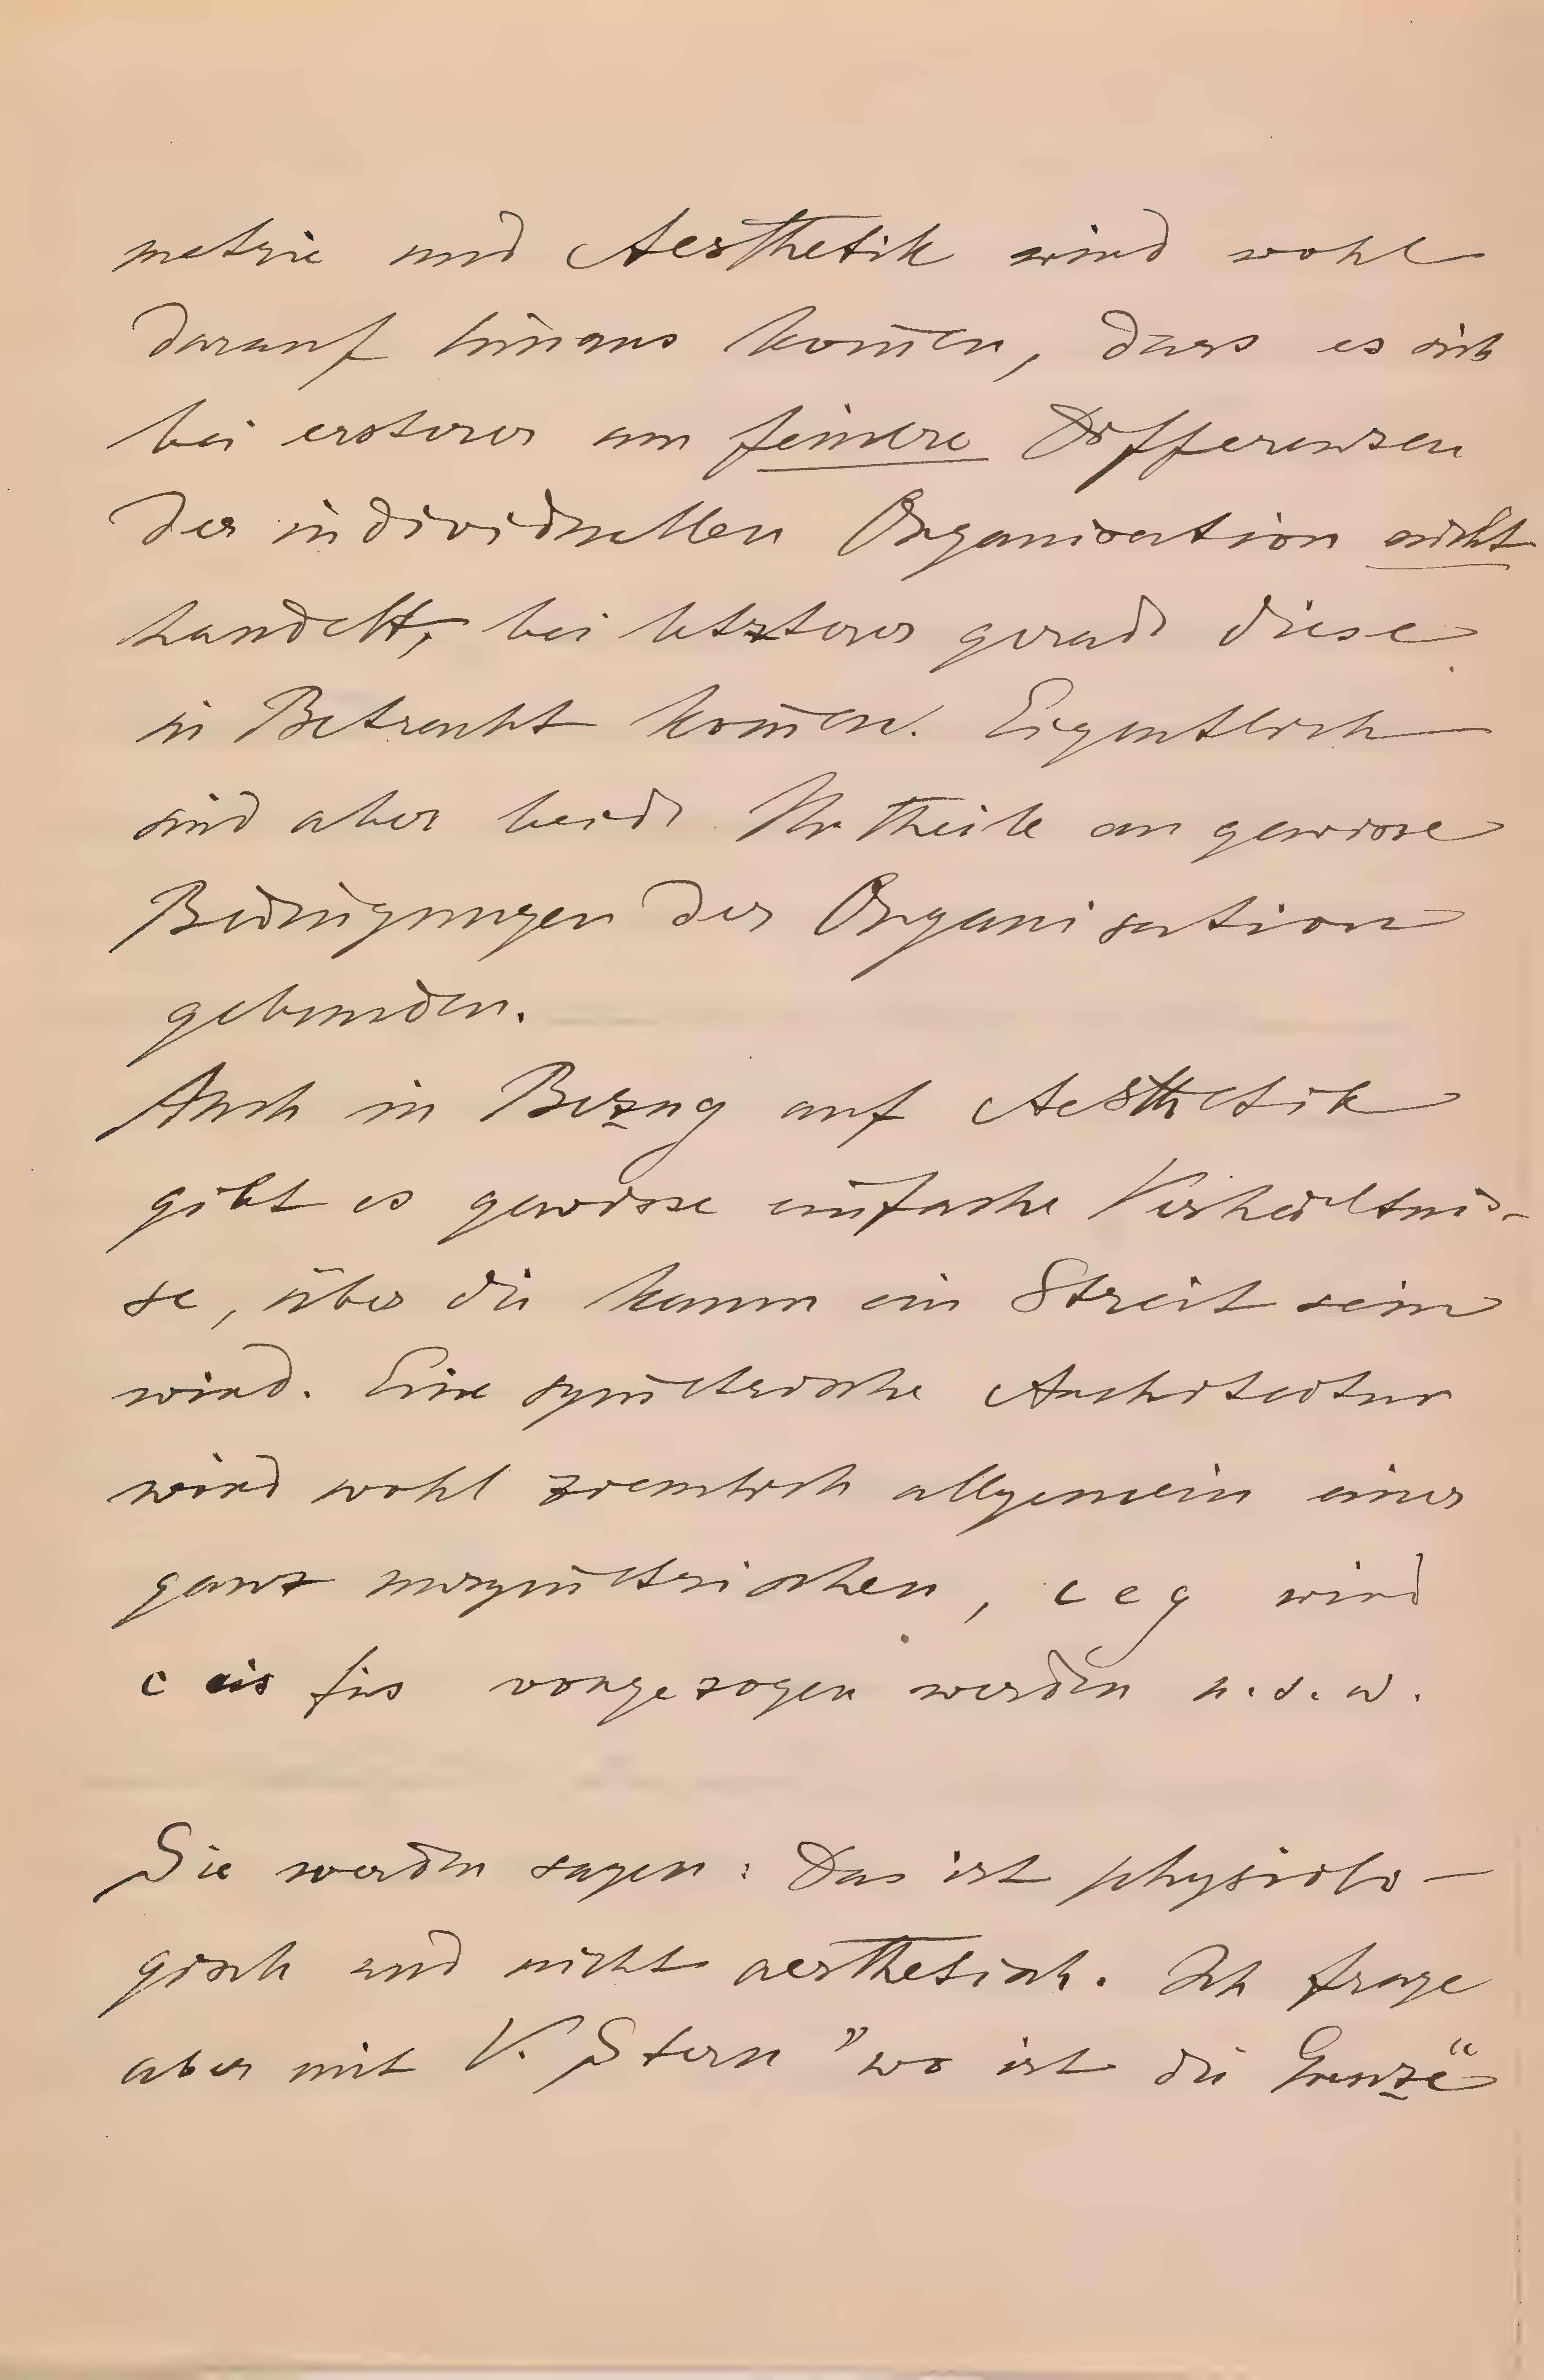 metrie und Aesthetik wird wohl
darauf hinaus kom̅en, dass es sich
bei ersterer um feinere Differenzen
der individuellen Organisation nicht
handelt, bei letzterer gerade diese
in Betracht kom̅en. Eigentlich
sind aber beide Urtheile an gewisse
Bedingungen der Organisation
gebunden.
Auch in Bezug auf Aesthetik
gibt es gewisse einfache Verhältnis-
se, über die kaum ein Streit sein
wird. Eine sym̅etrische Architectur
wird wohl ziemlich allgemein einer
ganz unsym̅etrischen, c e g wird
c cis fis vorgezogen werden u.s.w.
Sie werden sagen: Das ist physiolo-
gisch und nicht aesthetisch. Ich frage
aber mit V. Stern "wo ist die Grenze"